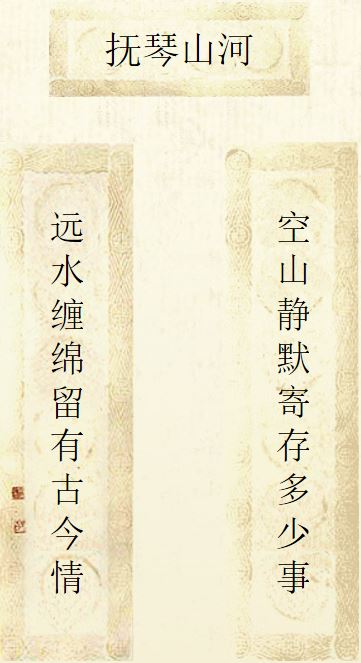 抚琴山河
空山静默寄存多少事
远水缠绵留有古今情